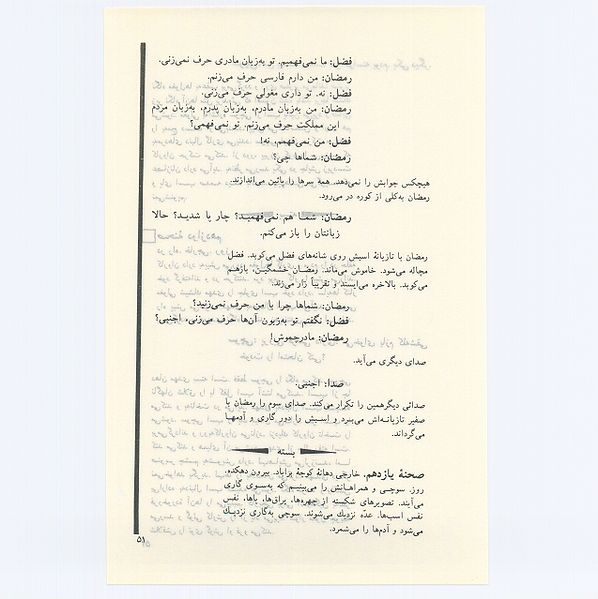 فضل: ما نمی‌فهمیم. تو به‌زبان مادری حرف نمی‌زنی.
رمضان: من دارم فارسی حرف می‌زنم.
فضل: نه. تو داری مغولی حرف می‌زنی.
رمضان: من به‌زبان مادرم، به‌زبان پدرم، به‌زبان مردم
این مملکت حرف می‌زنم. تو نمی‌فهمی؟
فضل: من نمی‌فهمم، نه!
رمضان: شماها چی؟
هیچکس جوابش را نمی‌دهد. همه سرها را پائین می‌اندازند.
رمضان به‌کلی از کوره در می‌رود.
رمضان: شما هم نمی‌فهمید؟ چار پا شدید؟ حالا
زبانتان را باز می‌کنم.
رمضان با تازیانهٔ اسبش روی شانه‌های فضل می‌کوبد. فضل
مچاله می‌شود. خاموش می‌ماند. رمضان خشمگین، بازهم
می‌کوبد. بالاخره می‌ایستد و تقریباً زار می‌زند.
رمضان: شماها چرا با من حرف نمی‌زنید؟
فضل: نگفتم تو به‌زبون آن‌ها حرف می‌زنی، اجنبی؟
رمضان: مادرجموش!
صدای دیگری می‌آید.
صدا: اجنبی.
صدائی دیگر همین را تکرار می‌کند. صدای سوم را رمضان با
صفیر تازیانه‌اش می‌برد و اسبش را دور گاری و آدمها
می‌گرداند.
بسته
صحنهٔ یازدهم. خارجی دهانهٔ کوچهٔ بزاباد. بیرون دهکده.
روز. سوچی و همراهانش را می‌بینیم که به‌سوی گاری
می‌آیند. تصویرهای شکسته از چهره‌ها، یراق‌ها، پاها، نفس
نفس اسب‌ها. عدّه نزدیك می‌شوند. سوچی به‌گاری نزدیك
می‌شود و آدم‌ها را می‌شمرد.
۵۱